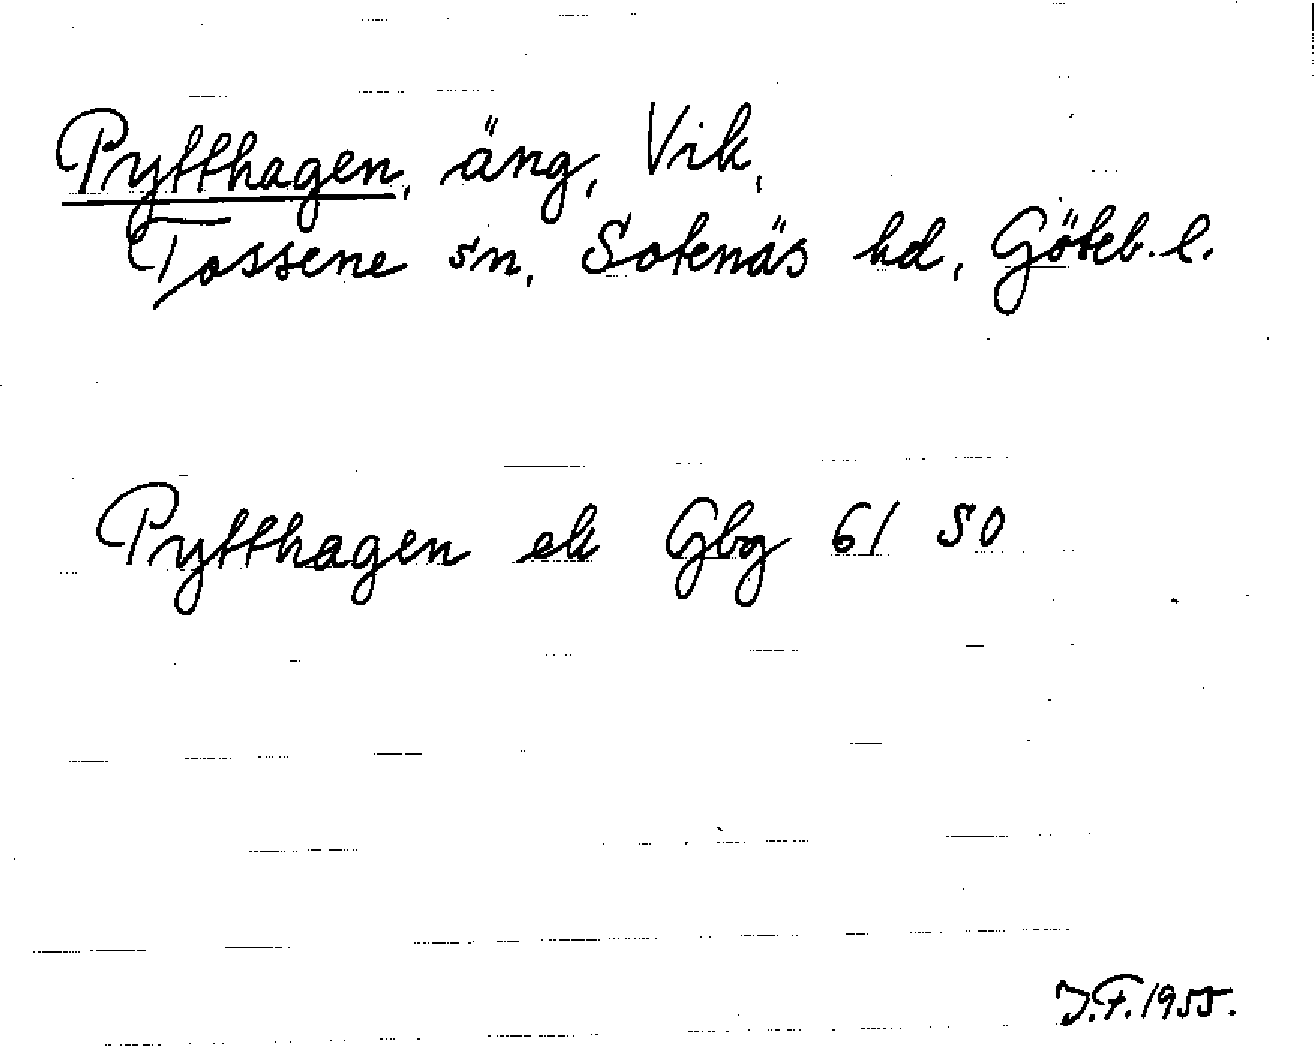 Pyffhagen, äng, Vik,
Tossene sn, Sotenäs hd, Göteb. l.
Pyffhagen ek Gbg 61 50
J.F. 1955.